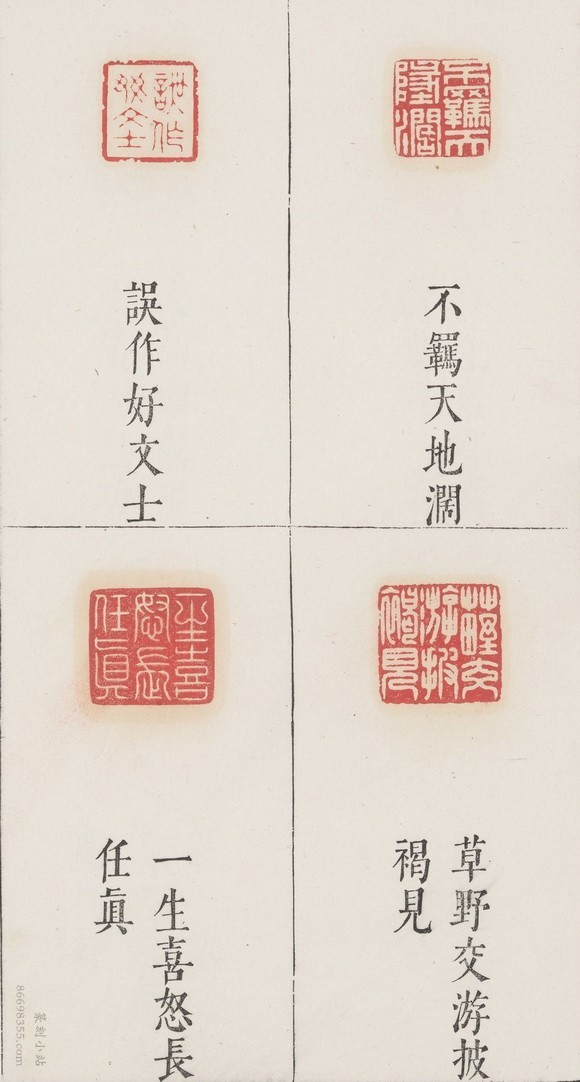 不羈天地濶
誤作好文士
草野交游披
褐見
一生喜怒長
任眞
篆刻小站
86698355.com